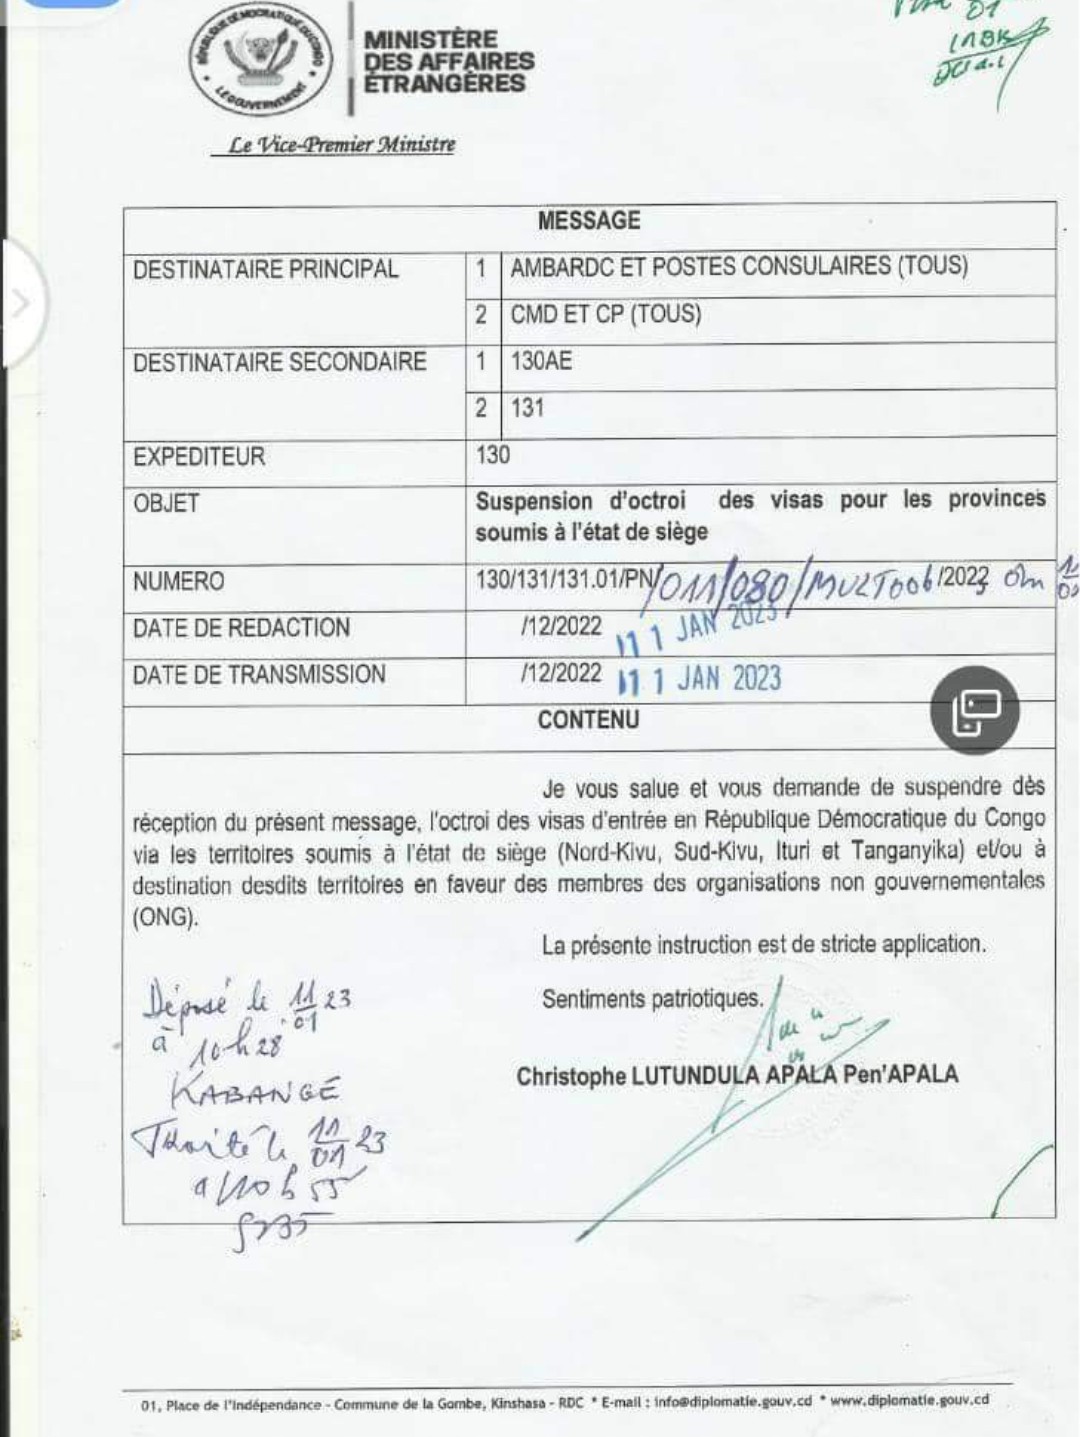 RÉPUBLIQUE DÉMOCRATIQUE DU CONGO
LE GOUVERNEMENT
MINISTÈRE
DES AFFAIRES
ÉTRANGÈRES
Le Vice-Premier Ministre
01
MESSAGE
DESTINATAIRE PRINCIPAL 1 AMBARDC ET POSTES CONSULAIRES (TOUS)
2 CMD ET CP (TOUS)
DESTINATAIRE SECONDAIRE 1 130AE
2 131
EXPEDITEUR 130
OBJET Suspension d'octroi des visas pour les provinces
soumis à l'état de siège
NUMERO 130/131/131.01/PN/011/080/MULT006/2022
DATE DE REDACTION /12/2022 11 JAN 2023
DATE DE TRANSMISSION /12/2022 11 JAN 2023
CONTENU
Je vous salue et vous demande de suspendre dès
réception du présent message, l'octroi des visas d'entrée en République Démocratique du Congo
via les territoires soumis à l'état de siège (Nord-Kivu, Sud-Kivu, Ituri et Tanganyika) et/ou à
destination desdits territoires en faveur des membres des organisations non gouvernementales
(ONG).
La présente instruction est de stricte application.
Sentiments patriotiques.
Christophe LUTUNDULA APALA Pen'APALA
Déposé le 11/01 23
à 10h28'
KABANGE
Traité le 11/01 23
à 10h55
01, Place de l'Indépendance - Commune de la Gombe, Kinshasa - RDC * E-mail : info@diplomatie.gouv.cd * www.diplomatie.gouv.cd